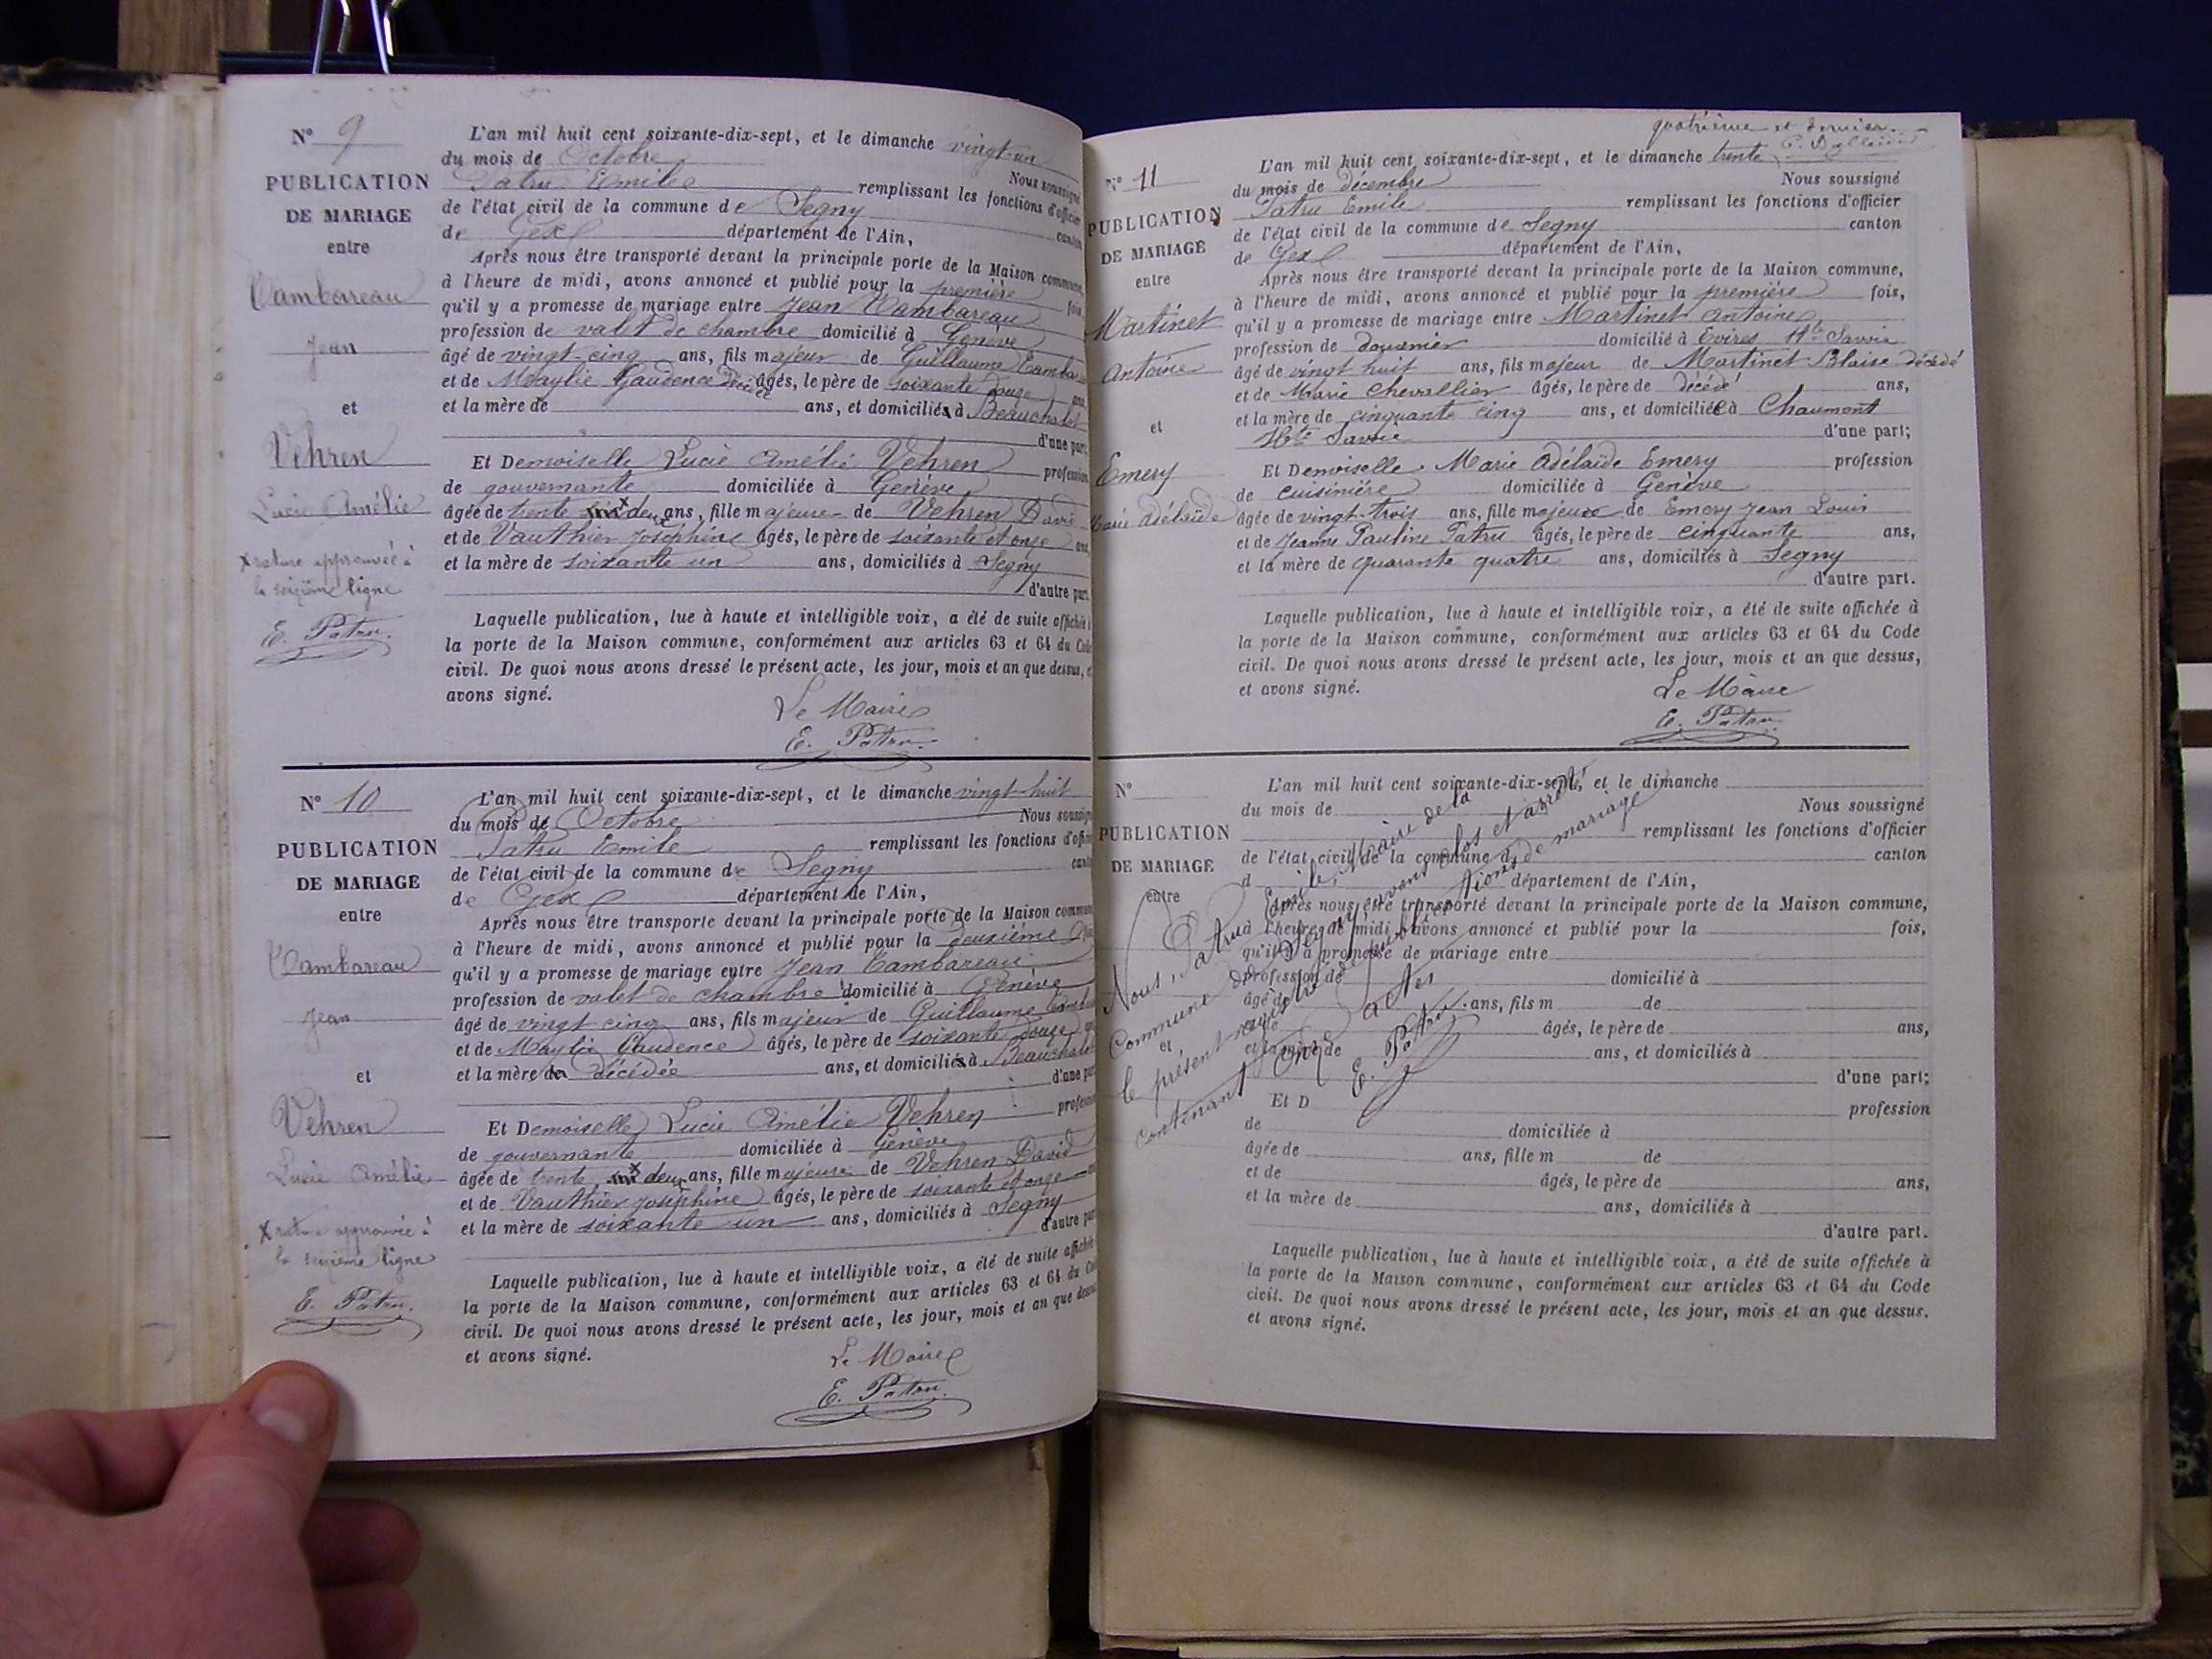 N° 9
PUBLICATION
DE MARIAGE
entre
Cambareau
Jean
et
Vehren
Lucie Amélie
x rature approuvée à
la seizième ligne
E. Patru.
L'an mil huit cent soixante-dix-sept, et le dimanche vingt-un
du mois de Octobre Nous soussigné
Patru Emile remplissant les fonctions d'officier
de l'état civil de la commune de Segny canton
de Gex département de l'Ain,
Après nous être transporté devant la principale porte de la Maison commune,
à l'heure de midi, avons annoncé et publié pour la première fois,
qu'il y a promesse de mariage entre Jean Cambareau
profession de valet de chambre domicilié à Genève
âgé de vingt-cinq ans, fils majeur de Guillaume Camba
et de Maylie Gaudence âgés, le père de soixante douze ans,
et la mère de ans, et domiciliés à Beauchalot
d'une part,
Et Demoiselle Lucie Amélie Vehren profession
de gouvernante domiciliée à Genève
âgée de trente deux ans, fille majeure de Vehren David
et de Vauthier Joséphine âgés, le père de soixante et onze ans,
et la mère de soixante un ans, domiciliés à Segny
d'autre part.
Laquelle publication, lue à haute et intelligible voix, a été de suite affichée à
la porte de la Maison commune, conformément aux articles 63 et 64 du Code
civil. De quoi nous avons dressé le présent acte, les jour, mois et an que dessus, et
avons signé.
Le Maire
E. Patru.
N° 10
PUBLICATION
DE MARIAGE
entre
Cambareau
Jean
et
Vehren
Lucie Amélie
x rature approuvée à
la seizième ligne
E. Patru.
L'an mil huit cent soixante-dix-sept, et le dimanche vingt-huit
du mois de Octobre Nous soussigné
Patru Emile remplissant les fonctions d'officier
de l'état civil de la commune de Segny canton
de Gex département de l'Ain,
Après nous être transporté devant la principale porte de la Maison commune
à l'heure de midi, avons annoncé et publié pour la deuxième fois
qu'il y a promesse de mariage entre Jean Cambareau
profession de valet de chambre domicilié à Genève
âgé de vingt cinq ans, fils majeur de Guillaume
et de Maylie Gaudence âgés, le père de soixante douze
et la mère de décédée ans, et domiciliés à Beauchalot
d'une part
Et Demoiselle Lucie Amélie Vehren profession
de gouvernante domiciliée à Genève
âgée de trente deux ans, fille majeure de Vehren David
et de Vauthier Joséphine âgés, le père de soixante et onze
et la mère de soixante un ans, domiciliés à Segny
d'autre part
Laquelle publication, lue à haute et intelligible voix, a été de suite affichée
la porte de la Maison commune, conformément aux articles 63 et 64 du Code
civil. De quoi nous avons dressé le présent acte, les jour, mois et an que dessus
et avons signé.
Le Maire
E. Patru.
quatrième et dernier.
N° 11
PUBLICATION
DE MARIAGE
entre
Martinet
Antoine
et
Emery
Marie Adélaïde
L'an mil huit cent soixante-dix-sept, et le dimanche trente
du mois de décembre Nous soussigné
Patru Emile remplissant les fonctions d'officier
de l'état civil de la commune de Segny canton
de Gex département de l'Ain,
Après nous être transporté devant la principale porte de la Maison commune,
à l'heure de midi, avons annoncé et publié pour la première fois,
qu'il y a promesse de mariage entre Martinet Antoine
profession de douanier domicilié à Evires Hte Savoie
âgé de vingt huit ans, fils majeur de Martinet Blaise décédé
et de Marie Chevallier âgés, le père de décédé ans,
et la mère de cinquante cinq ans, et domiciliée à Chaumont
Hte Savoie d'une part;
Et Demoiselle Marie Adélaïde Emery profession
de cuisinière domiciliée à Genève
âgée de vingt-trois ans, fille majeure de Emery Jean Louis
et de Jeanne Pauline Patru âgés, le père de cinquante ans,
et la mère de quarante quatre ans, domiciliés à Segny
d'autre part.
Laquelle publication, lue à haute et intelligible voix, a été de suite affichée à
la porte de la Maison commune, conformément aux articles 63 et 64 du Code
civil. De quoi nous avons dressé le présent acte, les jour, mois et an que dessus,
et avons signé.
Le Maire
E. Patru.
N°
PUBLICATION
DE MARIAGE
entre
et
L'an mil huit cent soixante-dix-sept, et le dimanche
du mois de Nous soussigné
remplissant les fonctions d'officier
de l'état civil de la commune d canton
d département de l'Ain,
Après nous être transporté devant la principale porte de la Maison commune,
à l'heure de midi, avons annoncé et publié pour la fois,
qu'il y a promesse de mariage entre
profession de domicilié à
âgé de ans, fils m de
et de âgés, le père de ans,
et la mère de ans, et domiciliés à
d'une part;
Et D profession
de domiciliée à
âgée de ans, fille m de
et de âgés, le père de ans,
et la mère de ans, domiciliés à
d'autre part.
Laquelle publication, lue à haute et intelligible voix, a été de suite affichée à
la porte de la Maison commune, conformément aux articles 63 et 64 du Code
civil. De quoi nous avons dressé le présent acte, les jour, mois et an que dessus.
et avons signé.
Nous, Patru Emile, Maire de la
Commune de Segny, avons clos et arrêté
le présent registre de publications de mariage
contenant onze actes
E. Patru.